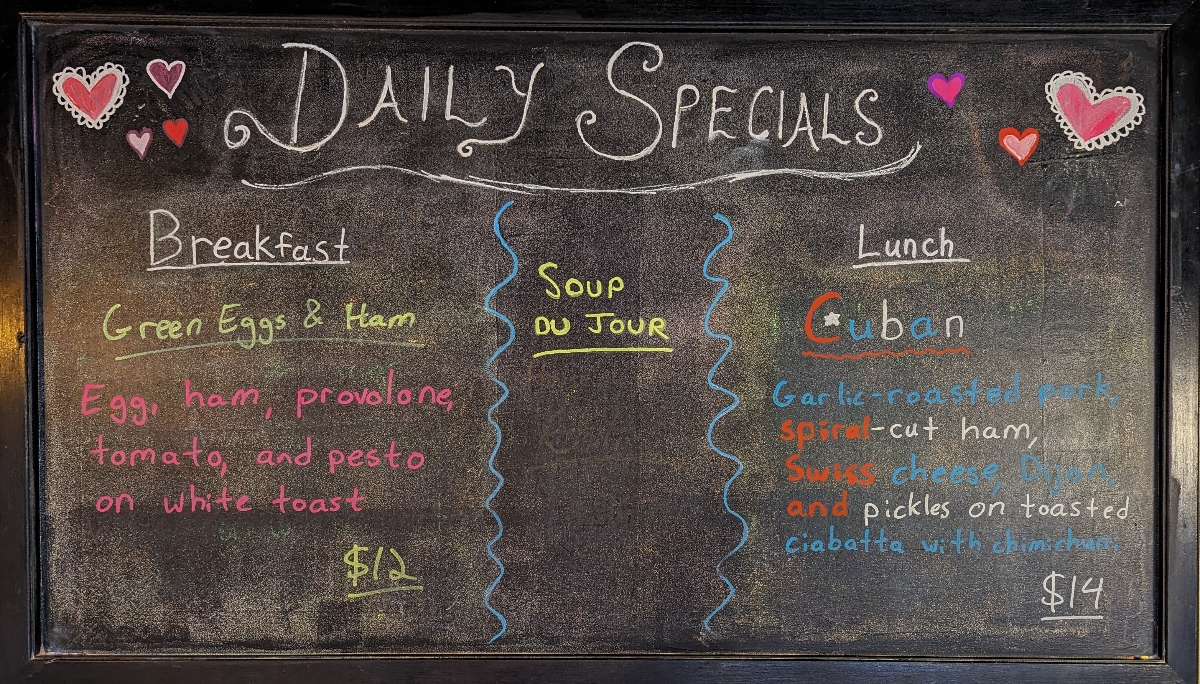 DAILY SPECIALS
Breakfast
Green Eggs & Ham
Egg, ham, provolone,
tomato, and pesto
on white toast
$12
SOUP
DU JOUR
Lunch
Cuban
Garlic-roasted pork,
spiral-cut ham,
Swiss cheese, Dijon,
and pickles on toasted
ciabatta with chimichurri
$14